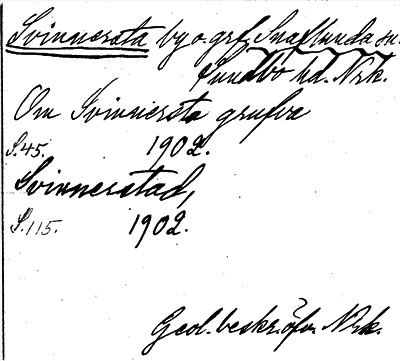 Svinnersta by o. grf. Snaflunda sn.
Sundbo hd. Nrk.
Om Svinnersta grufva
S. 45. 1902.
Svinnerstad,
S. 115. 1902.
Geol. beskr. öfv. Nrk.